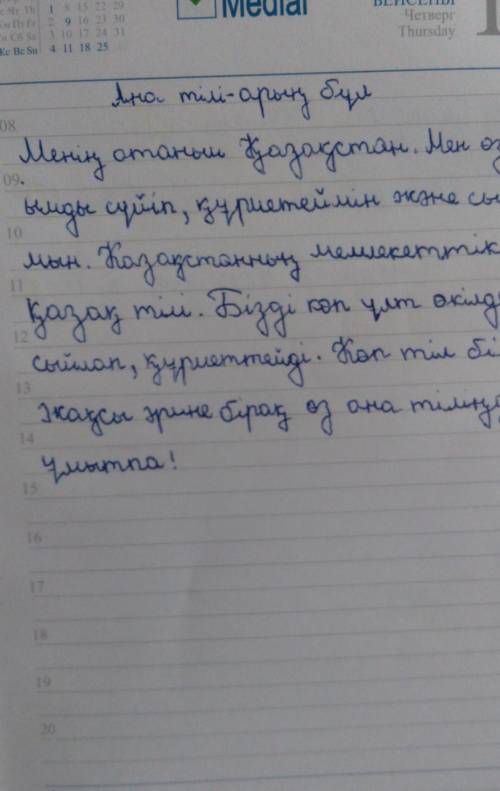 с Чт Th 1 8 15 22 29
Пт Fr 2 9 16 23 30
Сб Sa 3 10 17 24 31
Жс Вс Su 4 11 18 25
Medial
БЕЙСЕНБІ
Четверг
Thursday
Ана тілі-арың бұл
08
Менің отаным Қазақстан. Мен өз
09.
ымды сүйіп, құрметеймін және сы
10
мын. Қазақстанның мемлекеттік
11
қазақ тілі. Бізді көп ұлт өкілд
12
сыйлап, құрметтейді. Көп тіл бі
13
жақсы әрине бірақ өз ана тілің
14
ұмытпа!
15
16
17
18
19
20